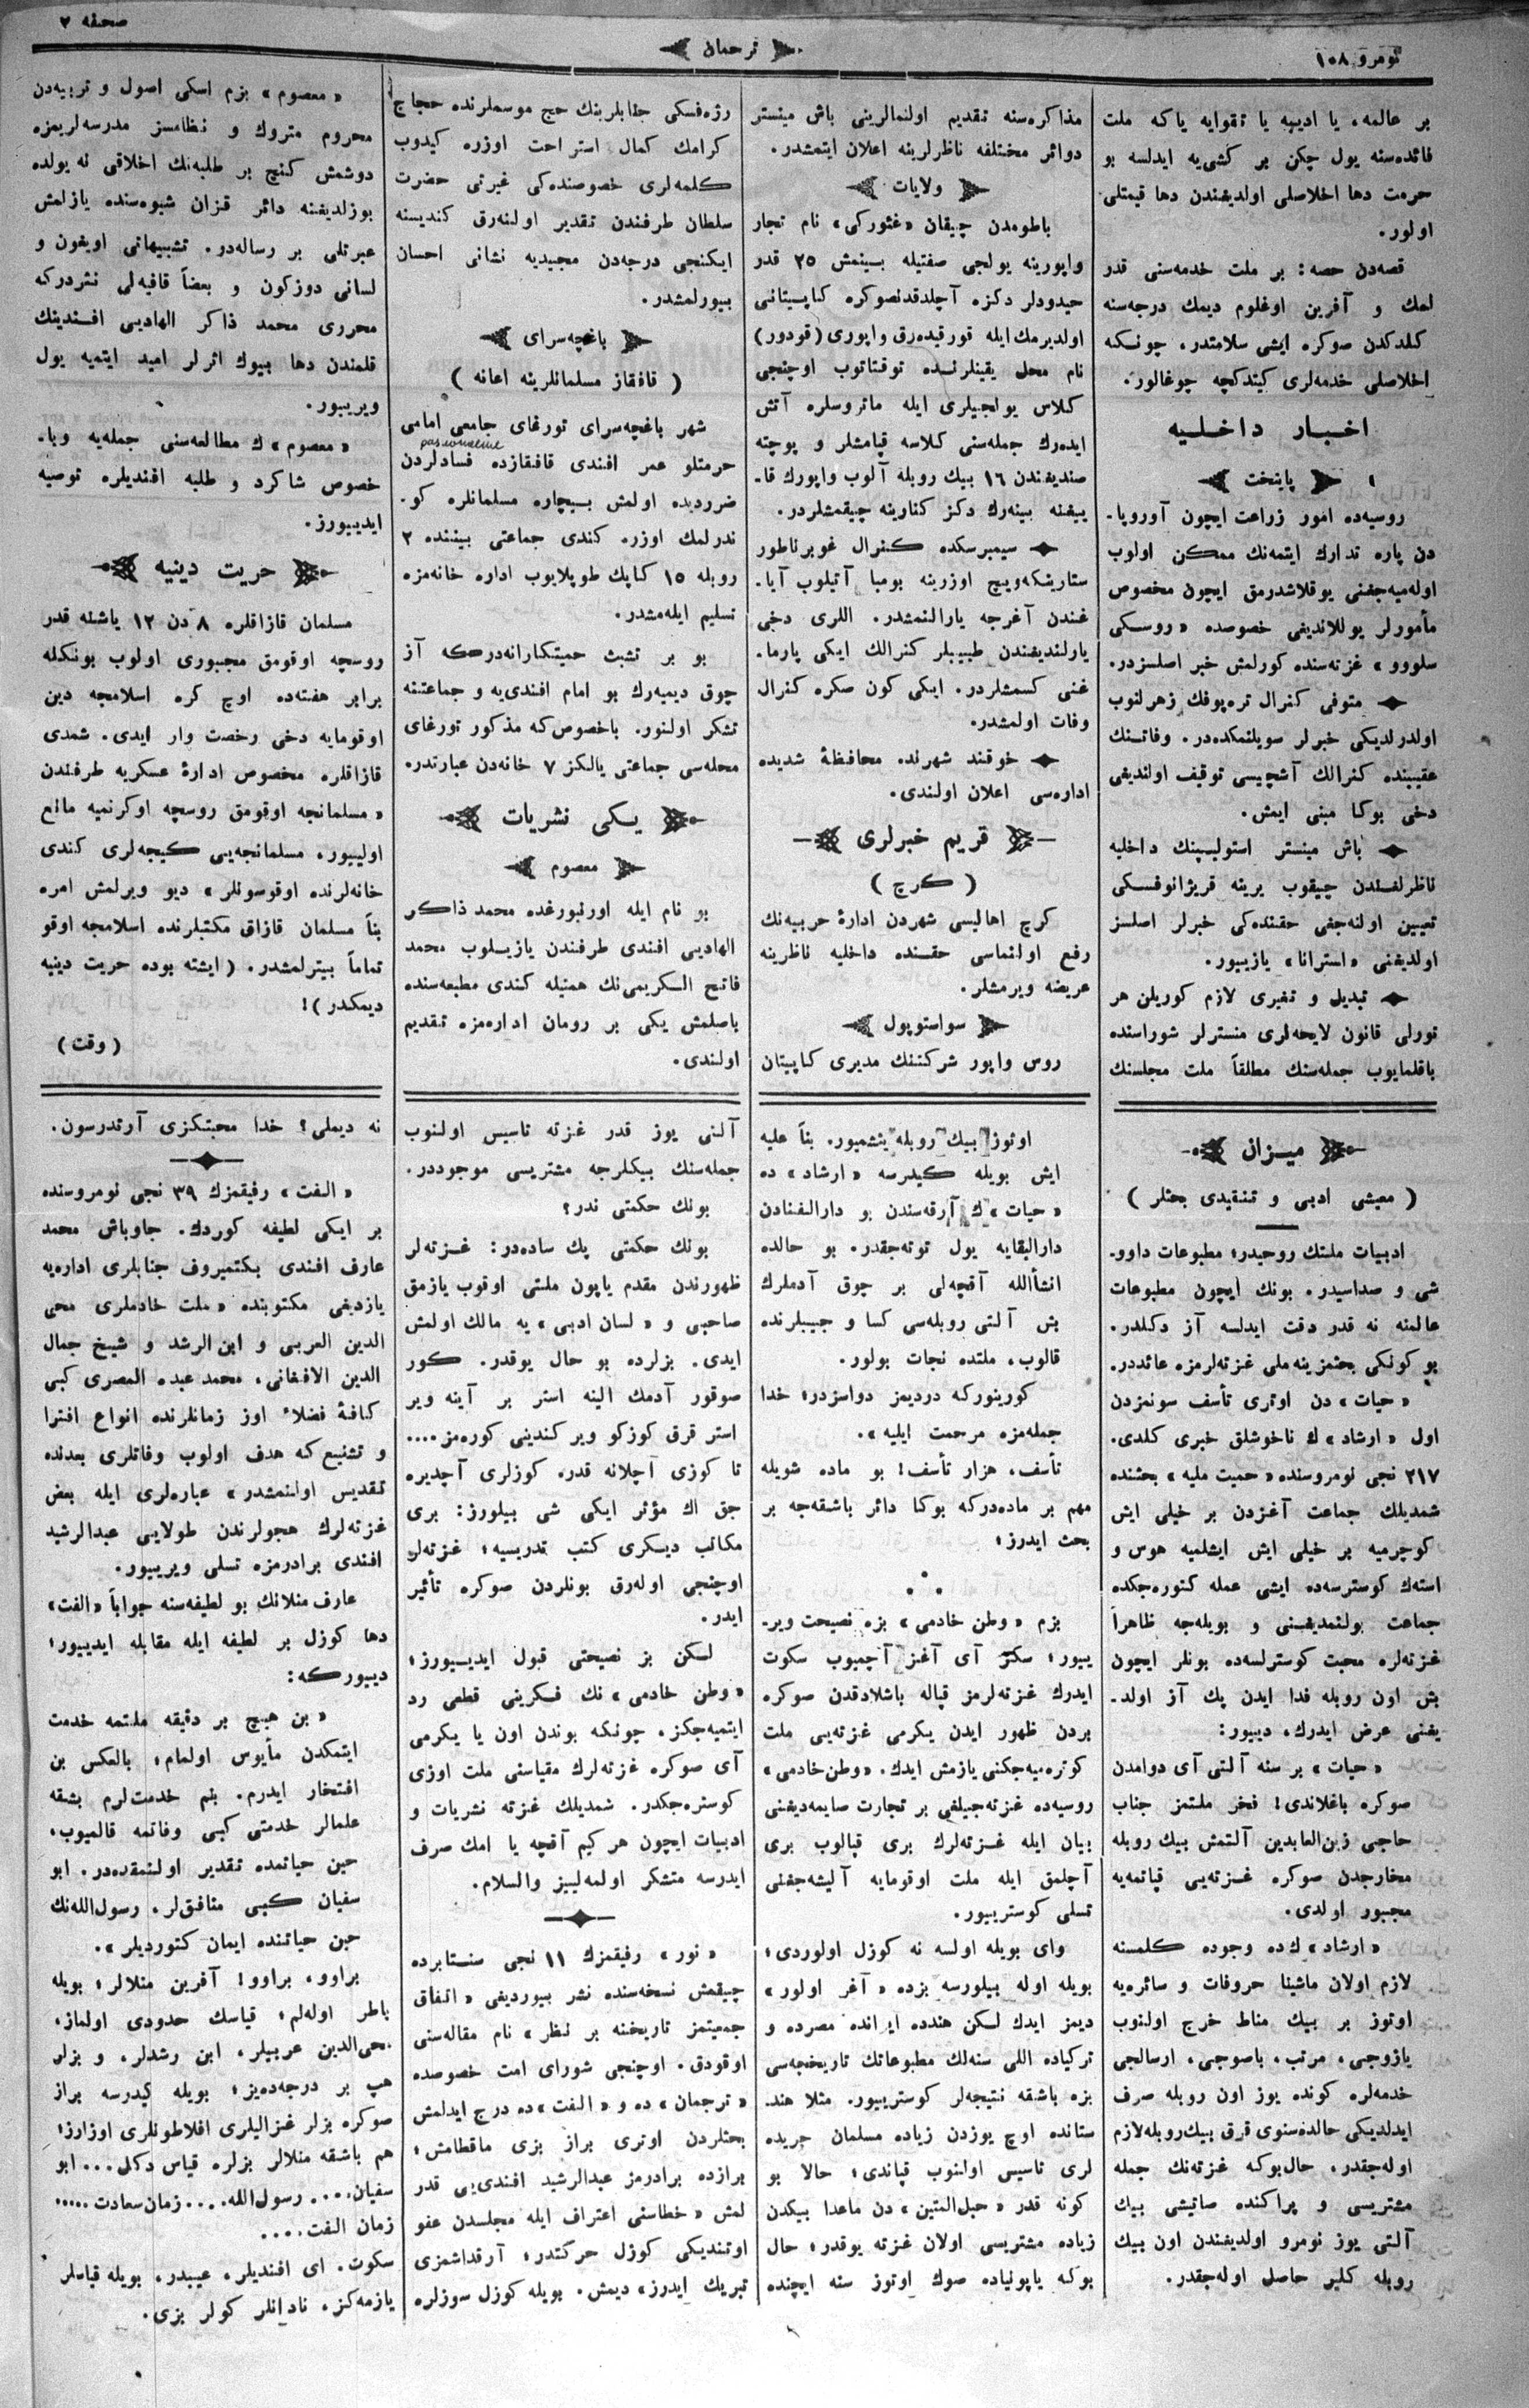 نومرو ۱۰۸
ترجمان
صحفه ۲
بر عالمه، یا ادیبه یا تقوایه یا که ملت
فائده‌سنه یول چکن بر کشی‌یه ایدلسه بو
حرمت دها اخلاصلی اولدیغندن دها قیمتلی
اولور.
قصه‌دن حصه: بر ملت خدمه‌سنی قدر
لمك و آفرین اوغلوم دیمك درجه‌سنه
کلدکدن صوکره ایشی سلامتدر، چونکه
اخلاصلی خدمه‌لری کیتدکچه چوغالور.
اخبار داخلیه
پایتخت
روسیه‌ده امور زراعت ایچون آوروپا-
دن پاره تدارك ایتمه‌نك ممکن اولوب
اوله‌میه‌جغنی یوقلاشدرمق ایچون مخصوص
مأمورلر یوللاندیغی خصوصده «روسکی
سلوو» غزته‌سنده کورلمش خبر اصلسزدر.
متوفی کنرال تره‌پوفك زهرلنوب
اولدرلدیکی خبرلر سویلنمکده‌در. وفاتنك
عقیبنده کنرالك آشچیسی توقیف اولندیغی
دخی بوکا مبنی ایمش.
باش مینستر استولیپینك داخلیه
ناظرلغندن چیقوب یرینه قریژانوفسکی
تعیین اولنه‌جغی حقنده‌کی خبرلر اصلسز
اولدیغنی «استرانا» یازییور.
تبدیل و تغیری لازم کوریلن هر
تورلی قانون لایحه‌لری منسترلر شوراسنده
باقلمایوب جمله‌سنك مطلقاً ملت مجلسنك
مذاکره‌سنه تقدیم اولنمالرینی باش مینستر
دوائر مختلفه ناظرلرینه اعلان ایتمشدر.
ولایات
باطومدن چیقان «غئورکی» نام تجار
واپورینه یولجی صفتیله بینمش ۲۵ قدر
حیدودلر دکزه آچلدقدنصوکره کاپیتانی
اولدیرمك ایله قورقیده‌رق واپوری (قودور)
نام محل یقینلرنده توقتاتوب اوچنجی
کلاس یولجیلری ایله ماتروسلره آتش
ایده‌رك جمله‌سنی کلاسه قپامشلر و پوچته
صندیغندن ۱٦ بیك روبله آلوب واپورك قا-
ییغنه بینه‌رك دکز کنارینه چیقمشلردر.
سیمبرسکده کنرال غوبرناطور
ستارینکه‌ویچ اوزرینه بومبا آتیلوب آیا-
غندن آغرجه یارالنمشدر. اللری دخی
یارلندیغندن طبیبلر کنرالك ایکی پارما-
غنی کسمشلردر. ایکی کون صکره کنرال
وفات اولمشدر.
خوقند شهرنده محافظهٔ شدیده
اداره‌سی اعلان اولندی.
قریم خبرلری
(کرچ)
کرچ اهالیسی شهردن ادارهٔ حربیه‌نك
رفع اولنماسی حقنده داخلیه ناظرینه
عریضه ویرمشلر.
سواستوپول
روس واپور شرکتنك مدیری کاپیتان
رژه‌فسکی جنابلرینك حج موسملرنده حجاج
کرامك کمال استراحت اوزره کیدوب
کلمه‌لری خصوصنده‌کی غیرتی حضرت
سلطان طرفندن تقدیر اولنه‌رق کندیسنه
ایکنجی درجه‌دن مجیدیه نشانی احسان
بیورلمشدر.
باغچه‌سرای
(قافقاز مسلمانلرینه اعانه)
شهر باغچه‌سرای تورغای جامعی امامی
حرمتلو عمر افندی قافقازده فسادلردن
ضرردیده اولمش بیچاره مسلمانلره کو-
ندرلمك اوزره کندی جماعتی بیننده ۲
روبله ۱۵ کاپك طوپلایوب اداره خانه‌مزه
تسلیم ایله‌مشدر.
بو بر تشبث حمیتکارانه‌درکه آز
چوق دیمیه‌رك بو امام افندی‌یه و جماعتنه
تشکر اولنور. باخصوص‌که مذکور تورغای
محله‌سی جماعتی یالکز ۷ خانه‌دن عبارتدر.
یکی نشریات
معصوم
بو نام ایله اورنبورغده محمد ذاکر
الهادیی افندی طرفندن یازیلوب محمد
فاتح الکریمی‌نك همتیله کندی مطبعه‌سنده
باصلمش یکی بر رومان اداره‌مزه تقدیم
اولندی.
«معصوم» بزم اسکی اصول و تربیه‌دن
محروم متروك و نظامسز مدرسه‌لریمزه
دوشمش کنچ بر طلبه‌نك اخلاقی نه یولده
بوزلدیغنه دائر قزان شیوه‌سنده یازلمش
عبرتلی بر رساله‌در. تشبیهاتی اویغون و
لسانی دوزکون و بعضاً قافیه‌لی نثردرکه
محرری محمد ذاکر الهادیی افندینك
قلمندن دها بیوك اثرلر امید ایتمیه یول
ویرییور.
«معصوم» ك مطالعه‌سنی جمله‌یه وبا-
خصوص شاکرد و طلبه افندیلره توصیه
ایدییورز.
حریت دینیه
مسلمان قازاقلره ۸ دن ۱۲ یاشنه قدر
روسچه اوقومق مجبوری اولوب بونکله
برابر هفته‌ده اوچ کره اسلامچه دین
اوقومایه دخی رخصت وار ایدی. شمدی
قازاقلره مخصوص ادارهٔ عسکریه طرفندن
«مسلمانجه اوقومق روسچه اوکرنمیه مانع
اولییور، مسلمانجه‌یی کیجه‌لری کندی
خانه‌لرنده اوقوسونلر» دیو ویرلمش امره
بناً مسلمان قازاق مکتبلرنده اسلامجه اوقو
تماماً بیترلمشدر. (ایشته بوده حریت دینیه
دیمکدر)!
(وقت)
میزان
(معیشی ادبی و تنقیدی بحثلر)
ادبیات ملتك روحیدر؛ مطبوعات داوو-
شی و صداسیدر. بونك ایچون مطبوعات
عالمنه نه قدر دقت ایدلسه آز دکلدر.
بو کونکی بحثمز ینه ملی غزته‌لرمزه عائددر.
«حیات» دن اوتری تأسف سونمزدن
اول «ارشاد» ك ناخوشلق خبری کلدی.
۲۱۷ نجی نومروسنده «حمیت ملیه» بحثنده
شمدیلك جماعت آغزدن بر خیلی ایش
کوچرمیه بر خیلی ایش ایشلمیه هوس و
استه‌ك کوسترسه‌ده ایشی عمله کتوره‌جکده
جماعت بولنمدیغنی و بویله‌جه ظاهراً
غزته‌لره محبت کوسترلسه‌ده بونلر ایچون
بش اون روبله فدا ایدن پك آز اولد-
یغنی عرض ایدرك، دییور:
«حیات» بر سنه آلتی آی دوامدن
صوکره باغلاندی! فخر ملتمز جناب
حاجی زین‌العابدین آلتمش بیك روبله
مخارجدن صوکره غزته‌یی قپاتمه‌یه
مجبور اولدی.
«ارشاد» ك‌ده وجوده کلمسنه
لازم اولان ماشینا حروفات و سائره‌یه
اوتوز بر بیك مناط خرج اولنوب
یازوجی، مرتب، باصوجی، ارسالجی
خدمه‌لره کونده یوز اون روبله صرف
ایدلدیکی حالده سنوی قرق بیك روبله لازم
اوله‌جقدر. حال‌بوکه غزته‌نك جمله
مشتریسی و پراکنده صاتیشی بیك
آلتی یوز نومرو اولدیغندن اون بیك
روبله کلیر حاصل اوله‌جقدر.
اوتوز بیك روبله یتشمیور. بناً علیه
ایش بویله کیدرسه «ارشاد» ده
«حیات» ك آرقه‌سندن بو دارالفنادن
دارالبقایه یول توته‌جقدر. بو حالده
انشأالله آقچه‌لی بر چوق آدملرك
بش آلتی روبله‌سی کسا و جیبلرنده
قالوب، ملتده نجات بولور.
کورینورکه دردیمز دواسزدر؛ خدا
جمله‌مزه مرحمت ایلیه».
تأسف، هزار تأسف! بو ماده شویله
مهم بر ماده‌درکه بوکا دائر باشقه‌جه بر
بحث ایدرز؛
بزم «وطن خادمی» بزه نصیحت ویر-
ییور؛ سکز آی آغز آچمیوب سکوت
ایدرك غزته‌لرمز قپاله باشلادقدن صوکره
بردن ظهور ایدن یکرمی غزته‌یی ملت
کوتره‌میه‌جکنی یازمش ایدك. «وطن خادمی»
روسیه‌ده غزته‌جیلغی بر تجارت صایمه‌دیغنی
بیان ایله غزته‌لرك بری قپالوب بری
آچلمق ایله ملت اوقومایه آلیشه‌جغنی
تسلی کوسترییور.
وای بویله اولسه نه کوزل اولوردی؛
بویله اوله بیلورسه بزده «آغر اولور»
دیمز ایدك لسکن هندده ایرانده مصرده و
ترکیاده اللی سنه‌لك مطبوعاتك تاریخجه‌سی
بزه باشقه نتیجه‌لر کوسترییور. مثلا هند-
ستانده اوچ یوزدن زیاده مسلمان جریده
لری تاسیس اولنوب قپاندی؛ حالا بو
کونه قدر «حبل‌المتین» دن ماعدا بیکدن
زیاده مشتریسی اولان غزته یوقدر؛ حال
بوکه یاپونیاده صوك اوتوز سنه ایچنده
آلتی یوز قدر غزته تاسیس اولنوب
جمله‌سنك بیکلرجه مشتریسی موجوددر.
بونك حکمتی ندر؟
بونك حکمتی پك ساده‌در: غزته‌لر
ظهورندن مقدم یاپون ملتی اوقوب یازمق
صاحبی و «لسان ادبی» یه مالك اولمش
ایدی. بزلرده بو حال یوقدر. کور
صوقور آدمك الینه استر بر آینه ویر
استر قرق کوزکو ویر کندینی کوره‌مز....
تا کوزی آچلانه قدر. کوزلری آچدیره
جق اك مؤثر ایکی شی بیلورز: بری
مکاتب دیکری کتب تدریسیه؛ غزته‌لر
اوچنجی اوله‌رق بونلردن صوکره تأثیر
ایدر.
لسکن بز نصیحتی قبول ایدییورز؛
«وطن خادمی» نك فکرینی قطعی رد
ایتمیه‌جکز، چونکه بوندن اون یا یکرمی
آی صوکره غزته‌لرك مقیاسنی ملت اوزی
کوستره‌جکدر. شمدیلك غزته نشریات و
ادبیات ایچون هر کیم آقچه یا امك صرف
ایدرسه متشکر اولمه‌لییز والسلام.
«نور» رفیقمزك ۱۱ نجی سنتابرده
چیقمش نسخه‌سنده نشر بیوردیغی «اتفاق
جمعیتمز تاریخنه بر نظر» نام مقاله‌سنی
اوقودق. اوچنجی شورای امت خصوصده
«ترجمان» ده و «الفت» ده درج ایدلمش
بحثلردن اوتری براز بزی ماقطامش؛
برازده برادرمز عبدالرشید افندی‌یی قدر
لمش «خطاسنی اعتراف ایله مجلسدن عفو
اوتندیکی کوزل حرکتدر؛ آرقداشمزی
تبریك ایدرز» دیمش. بویله کوزل سوزلره
نه دیملی؟ خدا محبتکزی آرتدرسون.
«الفت» رفیقمزك ۳۹ نجی نومروسنده
بر ایکی لطیفه کوردك. جاوباش محمد
عارف افندی بکتمیروف جنابلری اداره‌یه
یازدیغی مکتوبنده «ملت خادملری محی
الدین العربی و ابن الرشد و شیخ جمال
الدین الافغانی، محمد عبده المصری کبی
کافهٔ فضلاء اوز زمانلرنده انواع افترا
و تشنیع‌که هدف اولوب وفاتلری بعدنده
تقدیس اولنمشدر» عباره‌لری ایله بعض
غزته‌لرك هجولرندن طولایی عبدالرشید
افندی برادرمزه تسلی ویرییور.
عارف منلانك بو لطیفه‌سنه جواباً «الفت»
دها کوزل بر لطیفه ایله مقابله ایدییور؛
دییورکه:
«بن هیچ بر دقیقه ملتمه خدمت
ایتمکدن مأیوس اولمام؛ بالعکس بن
افتخار ایدرم. بنم خدمت‌لرم بشقه
علمالر خدمتی کبی وفاتمه قالمیوب،
حین حیاتمده تقدیر اولنمقده‌در. ابو
سفیان کبی منافق‌لر، رسول‌الله‌نك
حین حیاتنده ایمان کتوردیلر».
براوو، براوو! آفرین منلالر؛ بویله
باطر اوله‌لم؛ قیاسك حدودی اولماز،
محی‌الدین عربیلر، ابن رشدلر، و بزلر
هپ بر درجه‌ده‌یز؛ بویله کیدرسه براز
صوکره بزلر غزالیلری افلاطونلری اوزارز؛
هم باشقه منلالر بزلره قیاس دکل... ابو
سفیان.... رسول‌الله.... زمان سعادت.....
زمان الفت....
سکوت. ای افندیلر، عیبدر، بویله قیاسلر
یازمه‌کز، نادانلر کولر بزی.